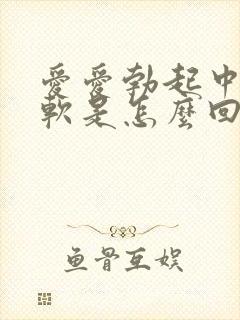 愛愛勃起中
軟是怎麼回
鱼骨互娱